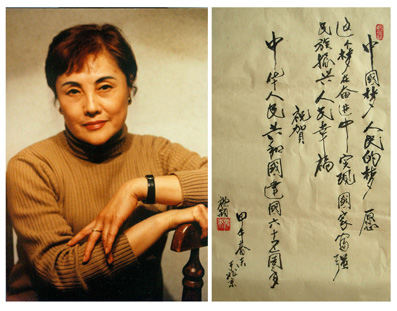 中國梦人民的梦 愿
这个梦在奋进中实现 國家富强
民族振兴 人民幸福
祝贺
中华人民共和國建國六十五周年
甲午春